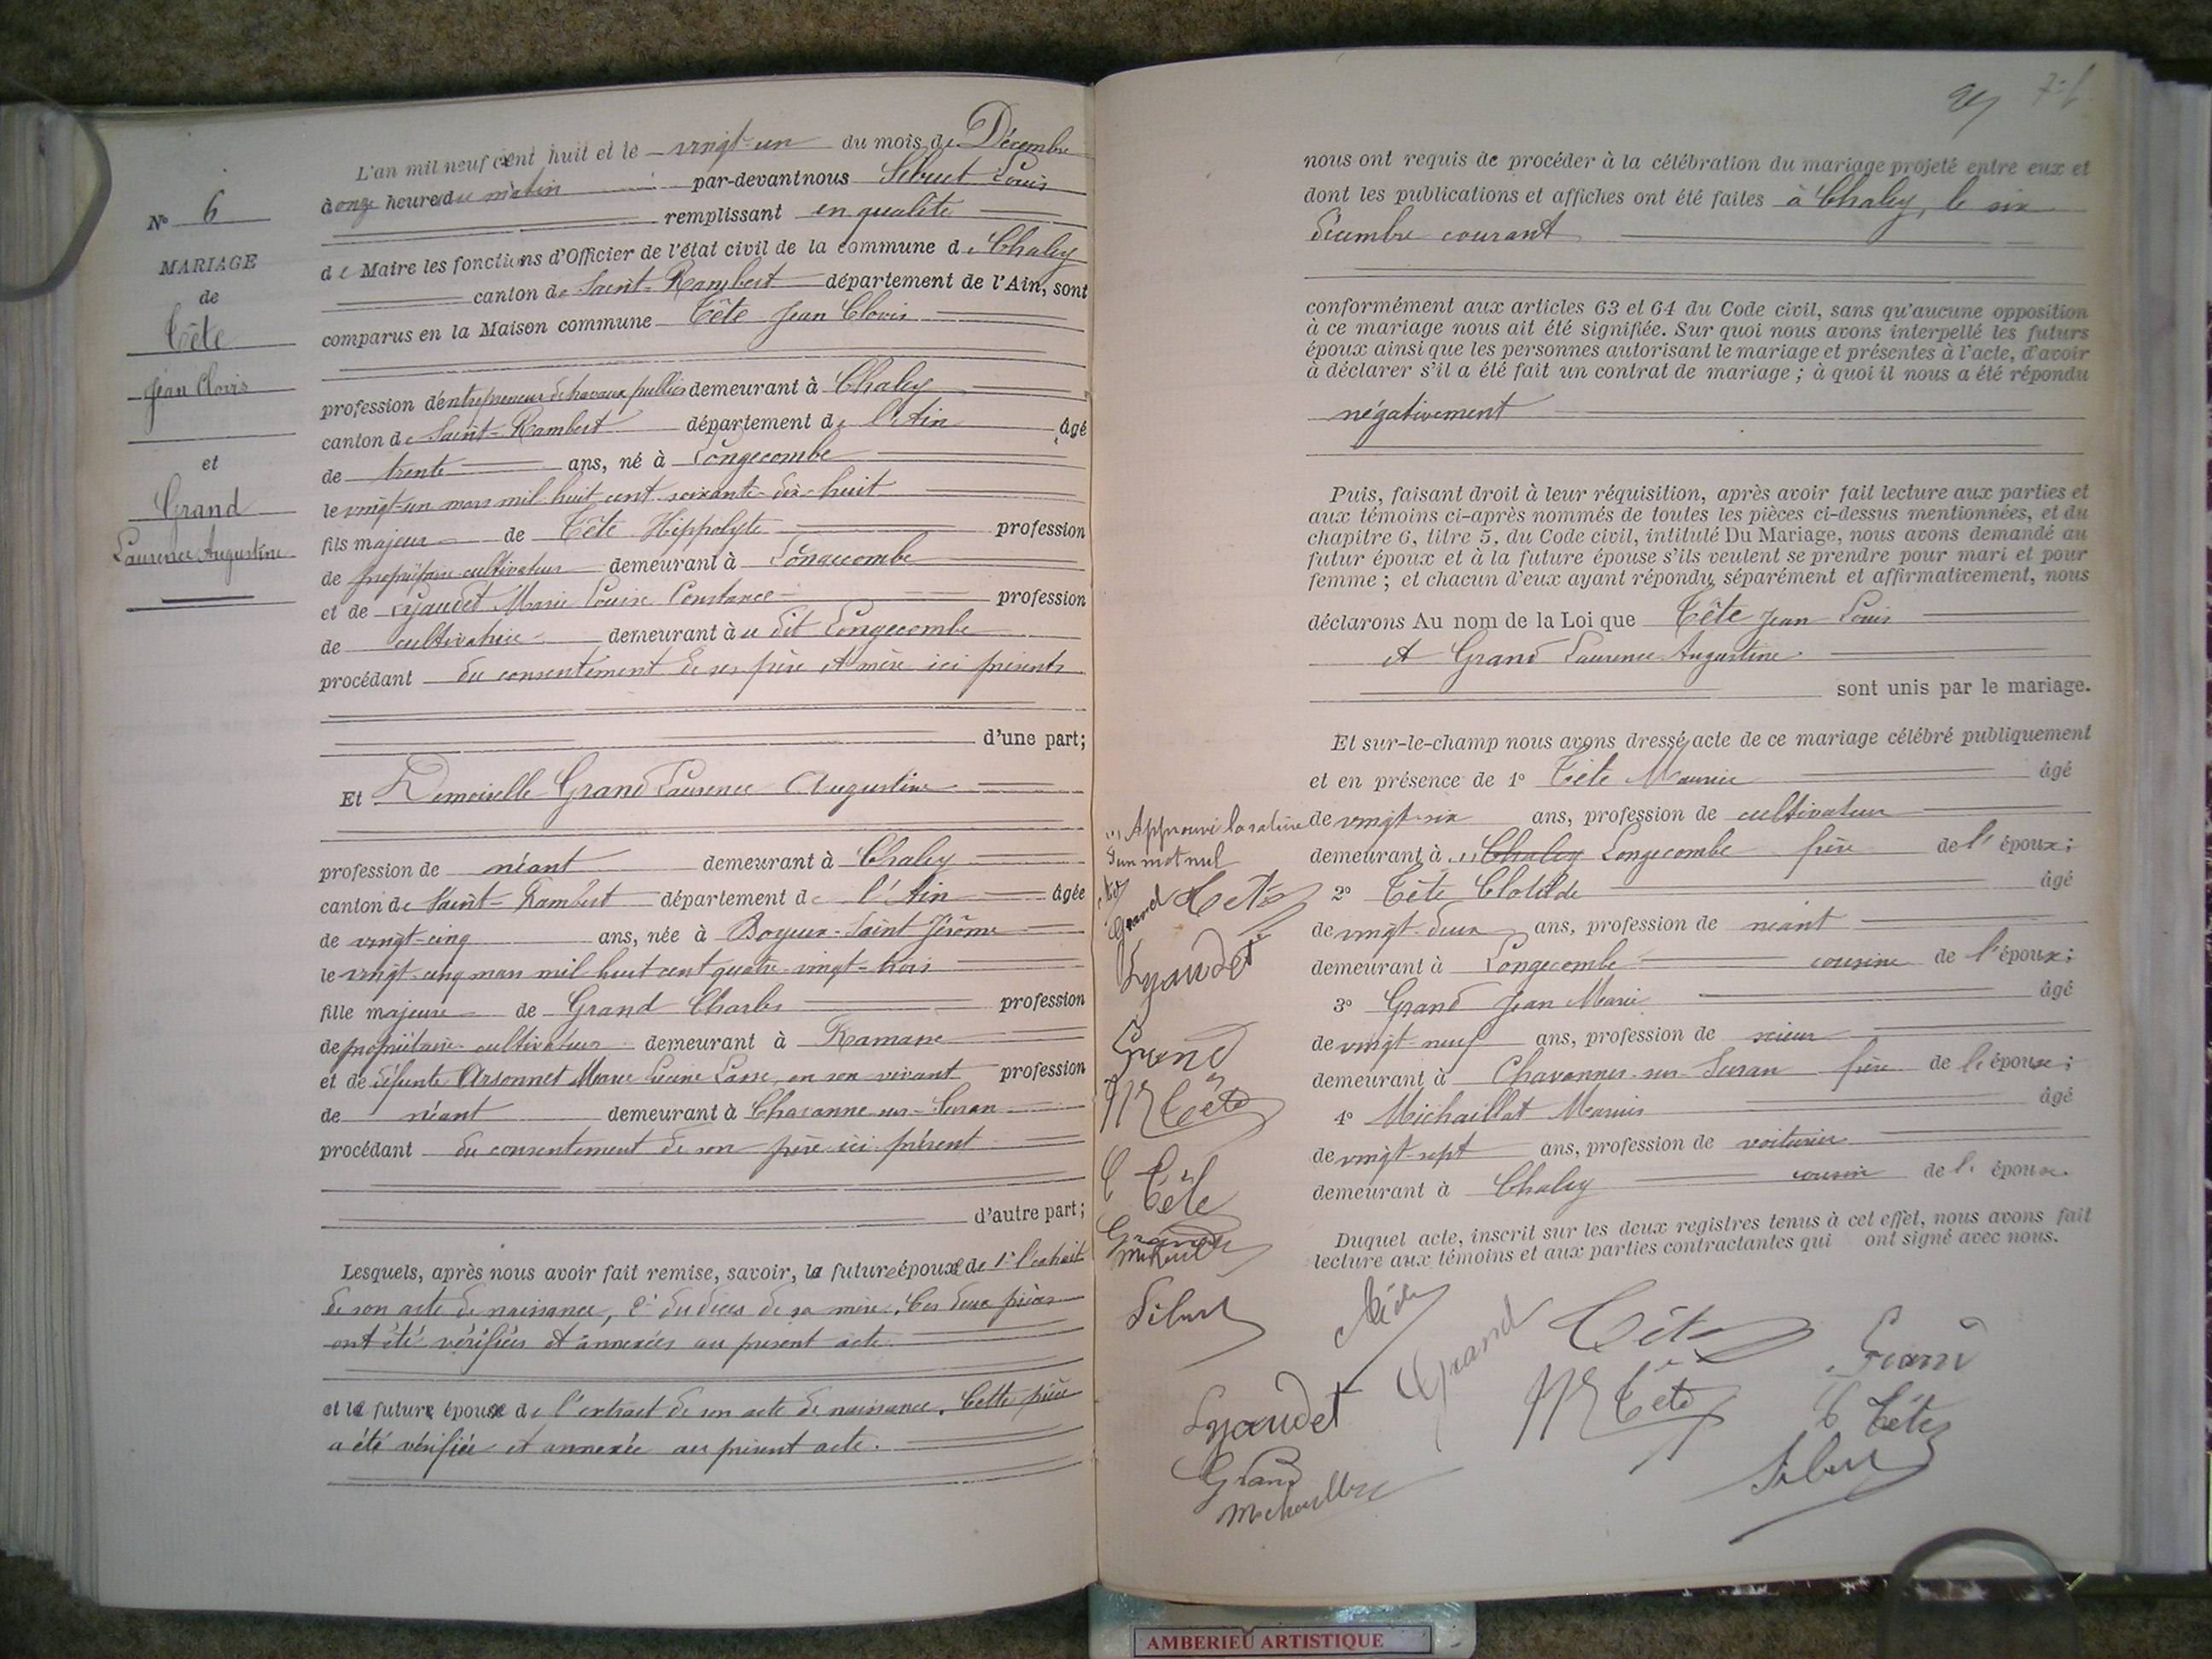 N° 6
MARIAGE
de
Tête
Jean Clovis
et
Grand
Laurence Augustine
L'an mil neuf cent huit et le vingt-un du mois de Décembre
à onze heures du matin par-devant nous Sibuet Louis
remplissant en qualité
de Maire les fonctions d'Officier de l'état civil de la commune de Chaley
canton de Saint-Rambert département de l'Ain, sont
comparus en la Maison commune Tête Jean Clovis
profession d'entrepreneur de travaux publics demeurant à Chaley
canton de Saint-Rambert département de l'Ain âgé
de trente ans, né à Longecombe
le vingt-un mars mil huit cent soixante-dix-huit
fils majeur de Tête Hippolyte profession
de propriétaire-cultivateur demeurant à Longecombe
et de Lyaudet Marie Louise Constance profession
de cultivatrice demeurant à u dit Longecombe
procédant du consentement de ses père et mère ici présents
d'une part;
Et Demoiselle Grand Laurence Augustine
profession de néant demeurant à Chaley
canton de Saint-Rambert département de l'Ain âgée
de vingt-cinq ans, née à Boyeux-Saint Jérôme
le vingt-cinq mars mil huit cent quatre-vingt-trois
fille majeure de Grand Charles profession
de propriétaire-cultivateur demeurant à Ramasse
et de défunte Arsonnet Marie en son vivant profession
de néant demeurant à Chavanne-sur-Suran
procédant du consentement de son père ici présent
d'autre part;
Lesquels, après nous avoir fait remise, savoir, la future épouse de 1° l'extrait
de son acte de naissance, 2° du décès de sa mère. Ces deux pièces
ont été vérifiées et annexées au présent acte.
et le futur époux de l'extrait de son acte de naissance. Cette pièce
a été vérifiée et annexée au présent acte.
nous ont requis de procéder à la célébration du mariage projeté entre eux et
dont les publications et affiches ont été faites à Chaley, le six
décembre courant
conformément aux articles 63 et 64 du Code civil, sans qu'aucune opposition
à ce mariage nous ait été signifiée. Sur quoi nous avons interpellé les futurs
époux ainsi que les personnes autorisant le mariage et présentes à l'acte, d'avoir
à déclarer s'il a été fait un contrat de mariage ; à quoi il nous a été répondu
négativement
Puis, faisant droit à leur réquisition, après avoir fait lecture aux parties et
aux témoins ci-après nommés de toutes les pièces ci-dessus mentionnées, et du
chapitre 6, titre 5, du Code civil, intitulé Du Mariage, nous avons demandé au
futur époux et à la future épouse s'ils veulent se prendre pour mari et pour
femme ; et chacun d'eux ayant répondu séparément et affirmativement, nous
déclarons Au nom de la Loi que Tête Jean Louis
et Grand Laurence Augustine
sont unis par le mariage.
Et sur-le-champ nous avons dressé acte de ce mariage célébré publiquement
et en présence de 1° Tête Maurice âgé
de vingt-six ans, profession de cultivateur
demeurant à (1) Chaley Longecombe frère de l'époux;
2° Tête Clotilde âgé
de vingt-deux ans, profession de néant
demeurant à Longecombe cousine de l'époux;
3° Grand Jean Marie âgé
de vingt-neuf ans, profession de scieur
demeurant à Chavannes-sur-Suran frère de l'épouse;
4° Michaillat Marius âgé
de vingt-sept ans, profession de voiturier
demeurant à Chaley cousin de l'époux.
Duquel acte, inscrit sur les deux registres tenus à cet effet, nous avons fait
lecture aux témoins et aux parties contractantes qui ont signé avec nous.
(1) Approuvé la rature
d'un mot nul
Grand Tête
Lyaudet
Grand
Tête
C Tête
Grand
Sibuet
Tête
Grand
Tête
Grand
Lyaudet
Tête
C Tête
Grand
Sibuet
Michaillat
AMBERIEU ARTISTIQUE